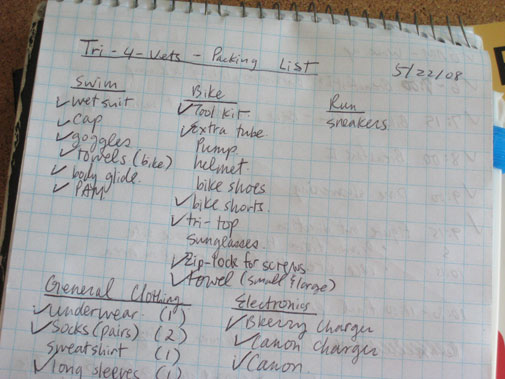 Tri-4-Vets - Packing List
5/22/08
Swim
✓ wetsuit
✓ cap
✓ goggles
✓ towels (bike)
✓ body glide
✓ PAM
Bike
✓ Tool kit
✓ Extra tube
Pump
helmet
bike shoes
✓ bike shorts
✓ tri-top
sunglasses
✓ Zip-lock for screws
✓ towel (small & large)
Run
sneakers
General Clothing
✓ underwear (1)
✓ Socks (pairs) (2)
sweatshirt (1)
✓ long sleeves (1)
Electronics
✓ Bkerry Charger
✓ Canon charger
✓ Canon